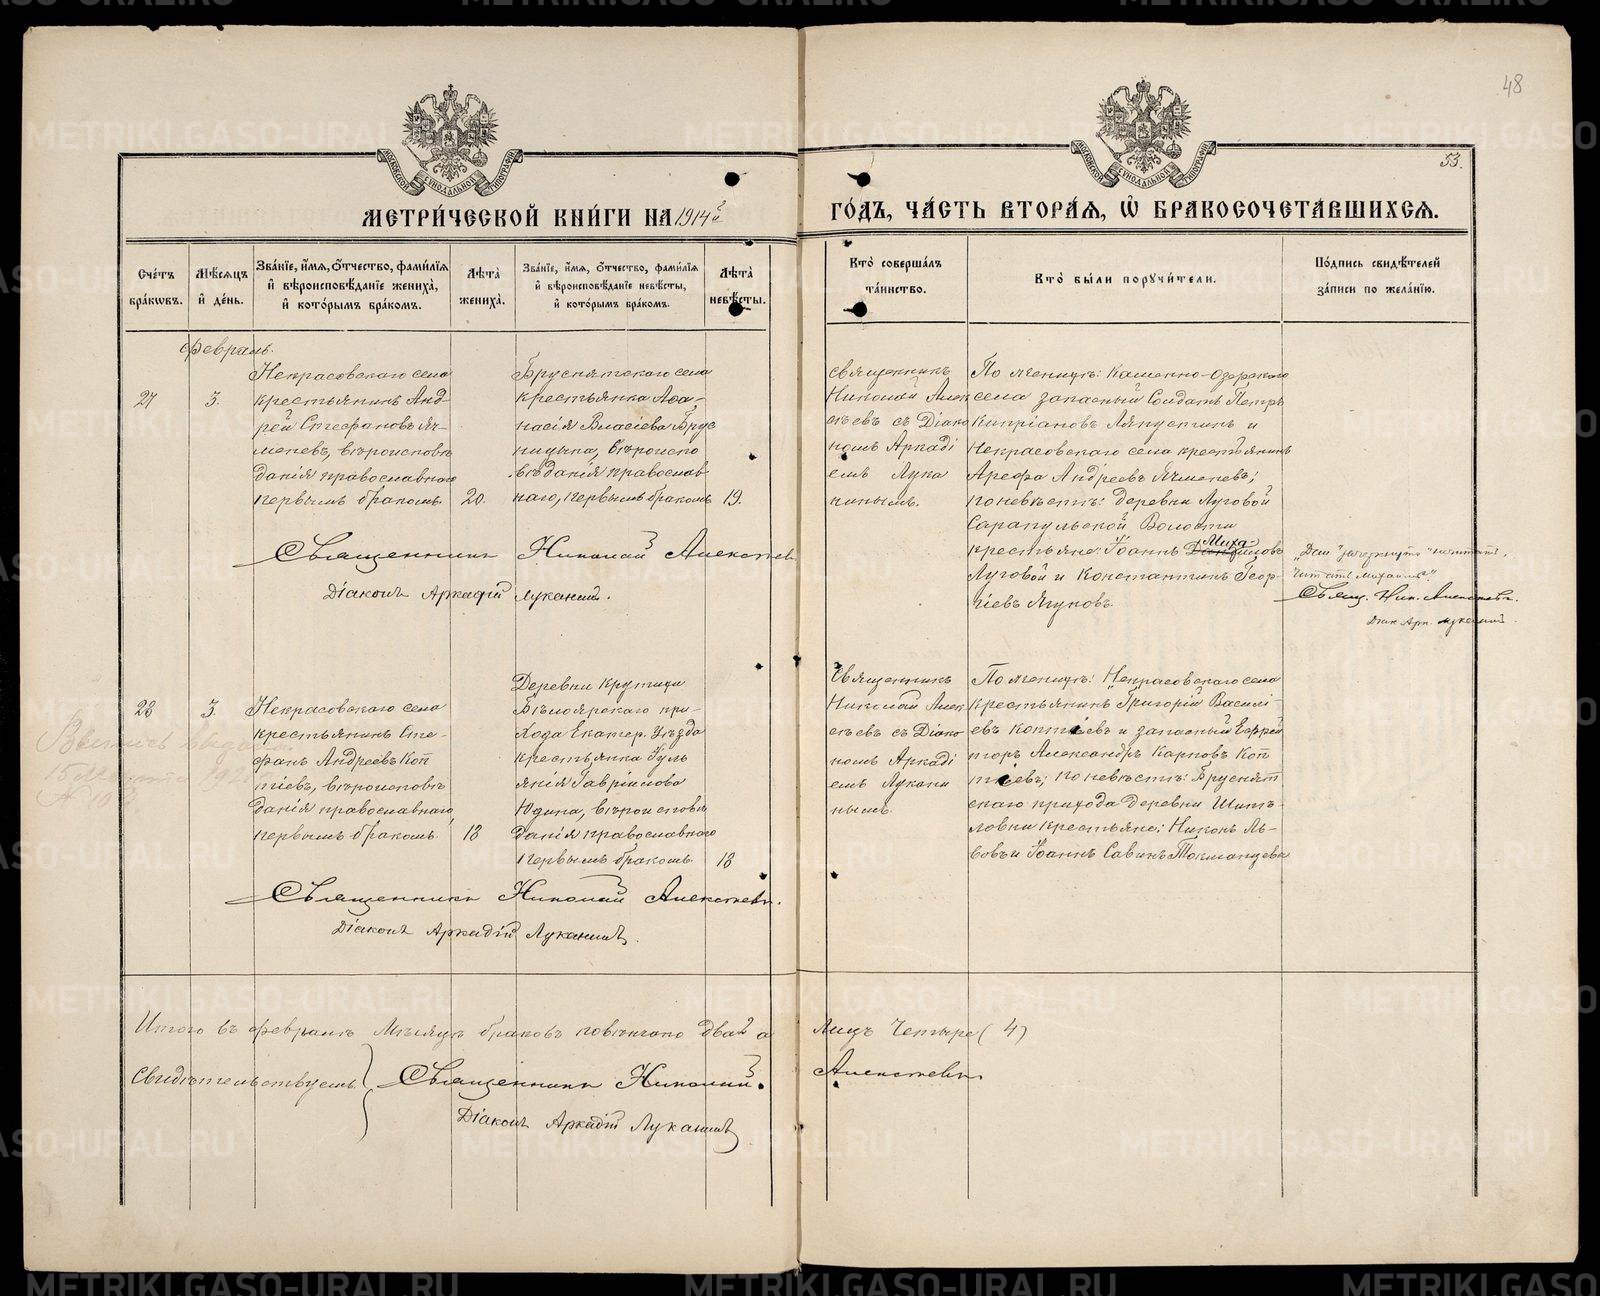 48
53.
МОСКОВСКОЙ СѴНОДАЛЬНОЙ ТИПОГРАФІИ
МОСКОВСКОЙ СѴНОДАЛЬНОЙ ТИПОГРАФІИ
МЕТРИ́ЧЕСКОЙ КНИ́ГИ НА 1914 й
ГО́ДЪ, ЧА́СТЬ ВТОРА́Я, Ѽ БРАКОСОЧЕТА́ВШИХСЯ.
Сче́тъ бра́кѡвъ.
Мѣ́сяцъ и́ де́нь.
Зва́нїе, и́мя, о́тчество, фами́лїя и́ вѣроисповѣ́данїе жениха̀, и́ кото́рымъ бра́комъ.
Лѣ́та̀ жениха̀.
Зва́нїе, и́мя, о́тчество, фами́лїя и́ вѣроисповѣ́данїе невѣ́сты, и́ кото́рымъ бра́комъ.
Лѣ́та̀ невѣ́сты.
Кто̀ соверша́лъ та́инство.
Кто̀ бы́ли порꙋчи́тели.
По́дпись свидѣ́телей за́писи по жела́нїю.
Февраль.
27
3.
Некрасовскаго села
крестьянинъ Анд-
рей Стефановъ Яч-
меневъ, вѣроисповѣ
данія православнаго
первымъ бракомъ.
20.
Бруснятскаго села
крестьянка Аѳа-
насія Власіева Брус
ницына, вѣроиспо
вѣданія православ
наго, первымъ бракомъ
19.
Священникъ
Николай Алек
сѣевъ съ Діако
номъ Аркаді
емъ Лука
нинымъ.
По женихѣ: Каменно-Озерскаго
села запасный Солдатъ Петръ
Кипріановъ Ляпустинъ и
Некрасовскаго села крестьянинъ
Арефа Андреевъ Ячменевъ;
по невѣстѣ: Деревни Луговой
Сарапульской Волости
крестьяне: Іоаннъ Михаиловъ
Луговой и Константинъ Геор-
гіевъ Ягуновъ.
"Дан" зачеркнуто
читать "Михаилъ".
Свящ. Ник. Алексѣевъ.
Діак. Арк. Луканинъ.
Священникъ Николай Алексѣевъ
Діаконъ Аркадій Луканинъ.
28
3.
Некрасовскаго села
крестьянинъ Сте-
фанъ Андреевъ Коп
тѣевъ, вѣроисповѣ
данія православнаго
первымъ бракомъ.
18
Деревни Крутихи
Бѣлоярскаго при-
хода Екатер. Уѣзда
крестьянка Іуль
янія Гавріилова
Юдина, вѣроисповѣ
данія православнаго
первымъ бракомъ.
18
Священникъ
Николай Алек
сѣевъ съ Діако
номъ Аркаді
емъ Лукани
нымъ.
По женихѣ: Некрасовскаго села
крестьянинъ Григорій Василі-
евъ Коптѣевъ и запасный Ефрей
торъ Александръ Карповъ Коп
тѣевъ; по невѣстѣ: Бруснят
скаго прихода Деревни Шипъ-
ловки крестьяне: Никонъ Ль-
вовъ и Іоаннъ Савинъ Токманцевы
Выпись выдана
15 Марта
Священникъ Николай Алексѣевъ.
Діаконъ Аркадій Луканинъ.
Итого въ Февралѣ Мѣсяцѣ браковъ повѣнчано два, а лицъ Четыре (4)
Свидѣтельствуемъ: Священникъ Николай Алексѣевъ.
Діаконъ Аркадій Луканинъ
METRIKI.GASO-URAL.RU